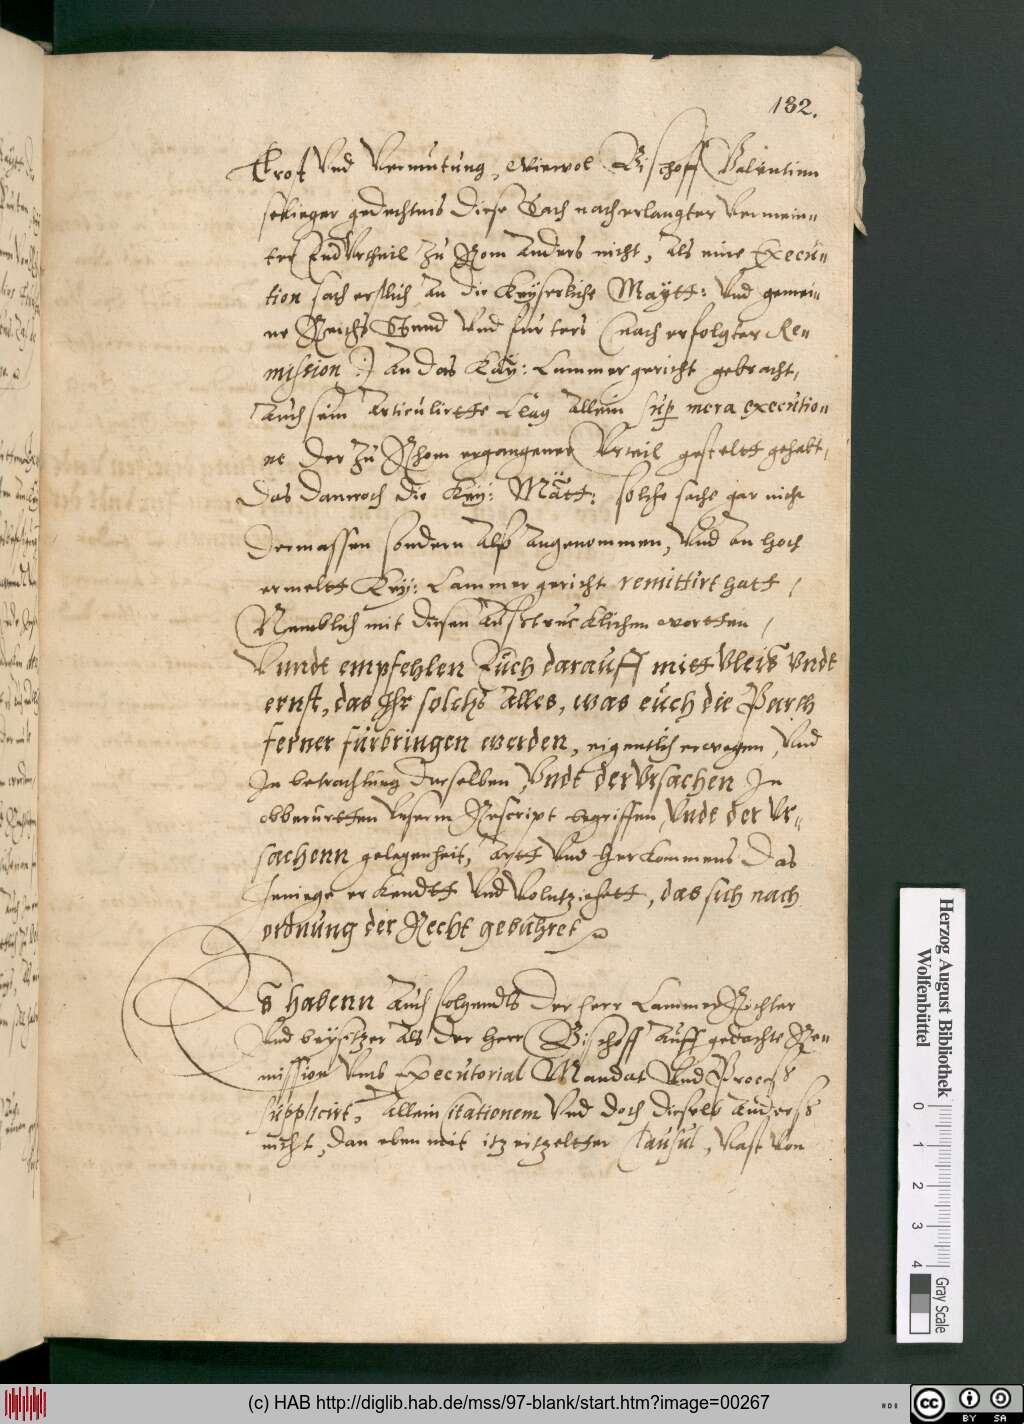 132.
Trost Vnd Vermutung, Wiewol Bischoff Valentinn
seliger gedechtnis diese Sach nach erlangter vermein-
ter EndVrtheil Zu Rom Anders nicht, Als eine Execu-
tion sach erstlich An die Keyserliche Maytt: Vnd gemei-
ne Reichs Stend Vnd furters (nach erfolgter Re-
mission:) An das Kay: Cammergericht gebracht,
Auch sein Articulirtte Clag Allein sup mera executio-
ne der Zu Rhom ergangener Vrteil gesteltt gehabt,
Das dannoch die Key: Mätt: solche sache gar nicht
dermassen sondern Alß Angenommen, Vnd an hoch
ermeltt Key: Cammergericht remittirt hatt,
Nemblich mit diesen Außtrucklichen wortten,
Vundt empfehlen Euch darauff mitt vleis vndt
ernst, das Ihr solchs Alles, was euch die Parth
ferner fürbringen werden, eigentlich erwegen, Vnd
In betrachtung derselben, Vndt der Vrsachen In
obberurtten Vnserm Rescript begriffen, Vnde der Vr-
sachenn gelegenheit, Artt Vnd herkommens das
Jeniege erkendtt Vnd Volntziehett, das sich nach
ordnung der Recht gebühret
Es habenn Auch folgendts der herr Cammer Richter
Vnd beysitzer Als der herr Bischoff Auff gedachte Re-
mission Vmb Executorial Mandat Vnd Process
supplicirt, Allein citationem Vnd doch dieselb Anderss
nicht, dan eben mit itz ertzeltter Clausul, Vast Von
Herzog August Bibliothek
Wolfenbüttel
0 1 2 3 4
Gray Scale
(c) HAB http://diglib.hab.de/mss/97-blank/start.htm?image=00267
HAB
cc BY SA